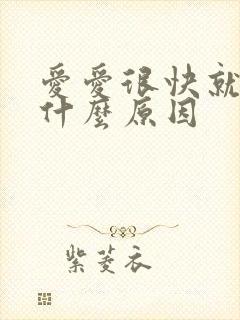 愛愛很快就
什麼原因
紫菱衣